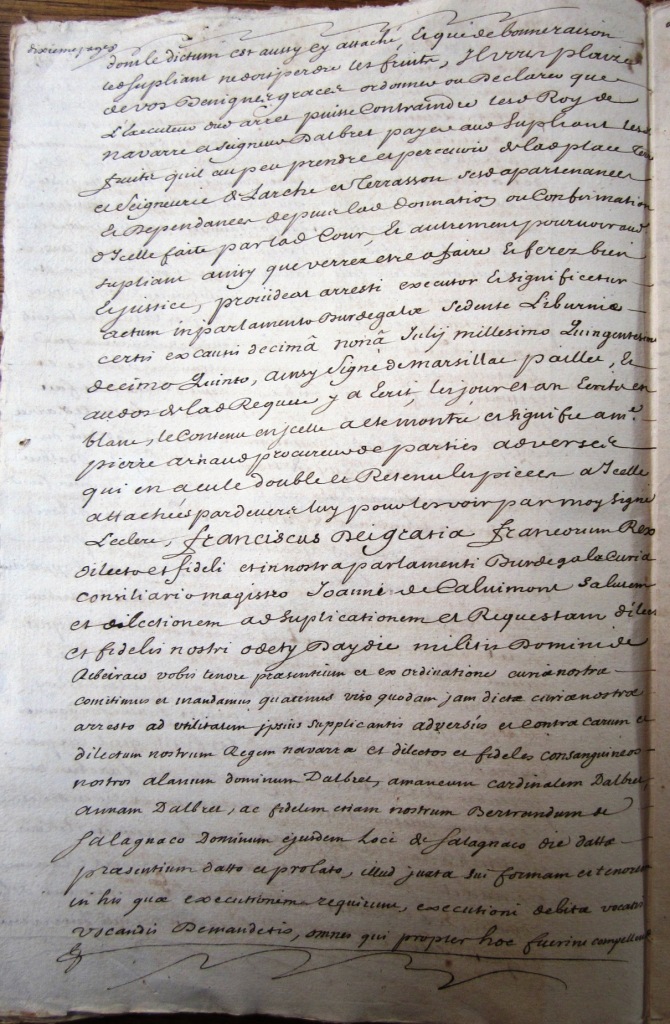 dixieme page
dont le dictum est aussy cy attaché, et que de bonne raison
led supliant ne doit perdre les fruits, Il vous plaize
de vos Benignes graces ordonner ou Declarer que
L'executeur dud arret puisse Contraindre led Roy de
navarre et Seigneur Dalbret payer aud Supliant lesd
fruits quil a peu prendre et percevoir de lad place Terre
et Seigneurie de Larche et Terrasson ses d apartenances
et Dependances depuis lad Donnation ou Confirmation
d'Icelle faite par lad Cour, Et autrement pourvoir aud
supliant ainsy que verrez etre a faire et ferez bien
Et justice, provideat arresti executor et significetur
actum in parlamento Burdegalae sedente Liburniae
certis ex causis decimâ nonâ Julij millesimo Quingentesimo
decimo Quinto, ainsy Signé de marsillac paillet, Et
au dos de lad Requete y a Ecrit, les jour et an Ecrits en
blanc, le Contenu en jcelle a eté montré et signifié a me.
pierre arnaud procureur de parties adverses
qui en a eu le double et Retenu les pieces a Icelle
attachées pardevers luy pour les voir par moy signé
Leclerc, franciscus Dei gratia francorum Rex
dilecto et fideli et in nostra parlamenti Burdegalae Curia
consiliario magistro Joanni de Calvimont Salutem
et dilectionem ad Suplicationem et Requestam dilecti
et fidelis nostri odety Daydie militis Domini de
Ribeiraco vobis tenore praesentium et ex ordinatione curiae nostrae
comitimus et mandamus quatenus viso quodam jam dictae curiae nostrae
arresto ad utilitatem jpsius supplicantis adversùs et contra carum et
dilectum nostrum Regem navarrae et dilectos et fideles consanguineos
nostros alanum dominum Dalbret, amaneum cardinalem Dalbret,
annam Dalbret, ac fidelem etiam nostrum Bertrandum de
Salagnaco Dominum ejusdem Loci de Salagnaco die dattae
praesentium datto et prolato, illud juxta sui formam et tenorem
in his quae executionem requirunt, executioni debitae vocatis
vocandis Demandetis, omnes qui propter hoc fuerint compellendi